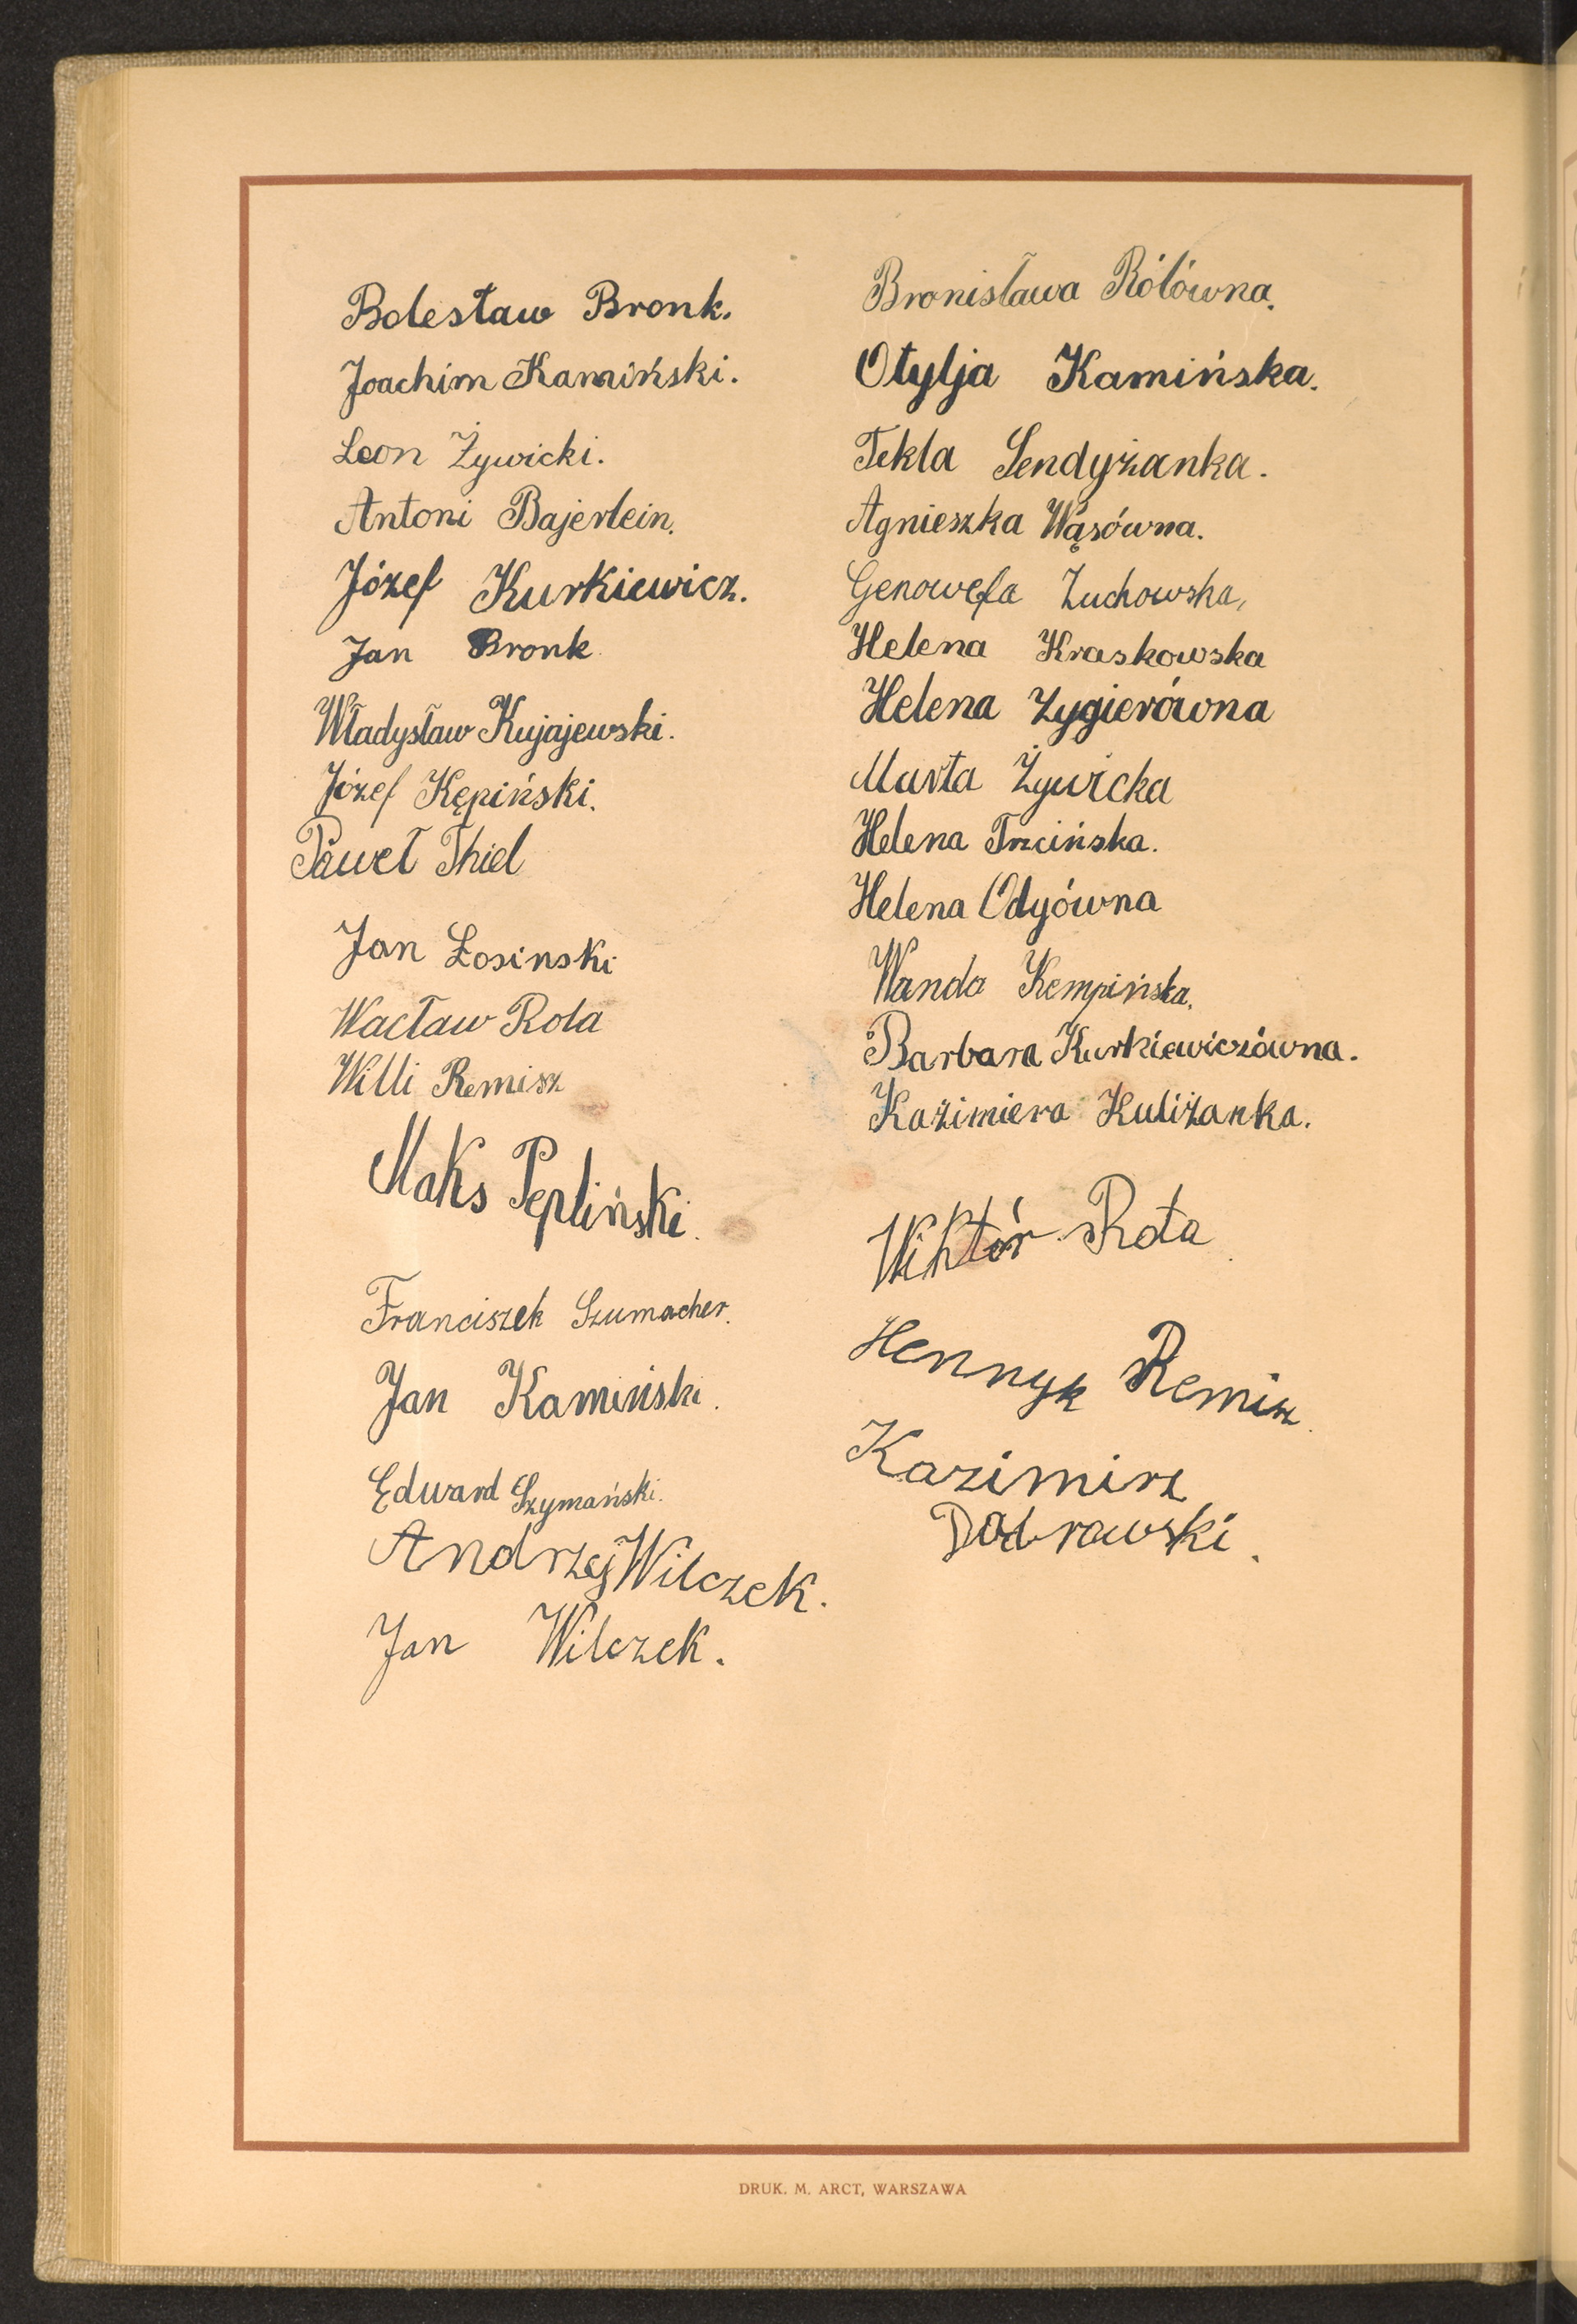 Bolesław Bronk.
Joachim Kamiński.
Leon Żywicki.
Antoni Bajerlein.
Józef Kurkiewicz.
Jan Bronk
Władysław Kujajewski.
Józef Kępiński.
Paweł Thiel
Jan Łosinski
Wacław Rola
Willi Remisz
Maks Pepliński.
Franciszek Szumacher.
Jan Kamiński.
Edward Szymański.
Andrzej Wilczek.
Jan Wilczek.
Bronisława Rólówna.
Otylja Kamińska.
Tekla Sendyżanka.
Agnieszka Wąsówna.
Genowefa Żuchowska,
Helena Kraskowska
Helena Zygierówna
Marta Żywicka
Helena Trzcińska.
Helena Odyówna
Wanda Kempińska.
Barbara Kurkiewiczówna.
Kazimiera Kuliżanka.
Wiktór Rota
Hennyk Remisz.
Kazimirz
Dobrowski.
DRUK. M. ARCT, WARSZAWA